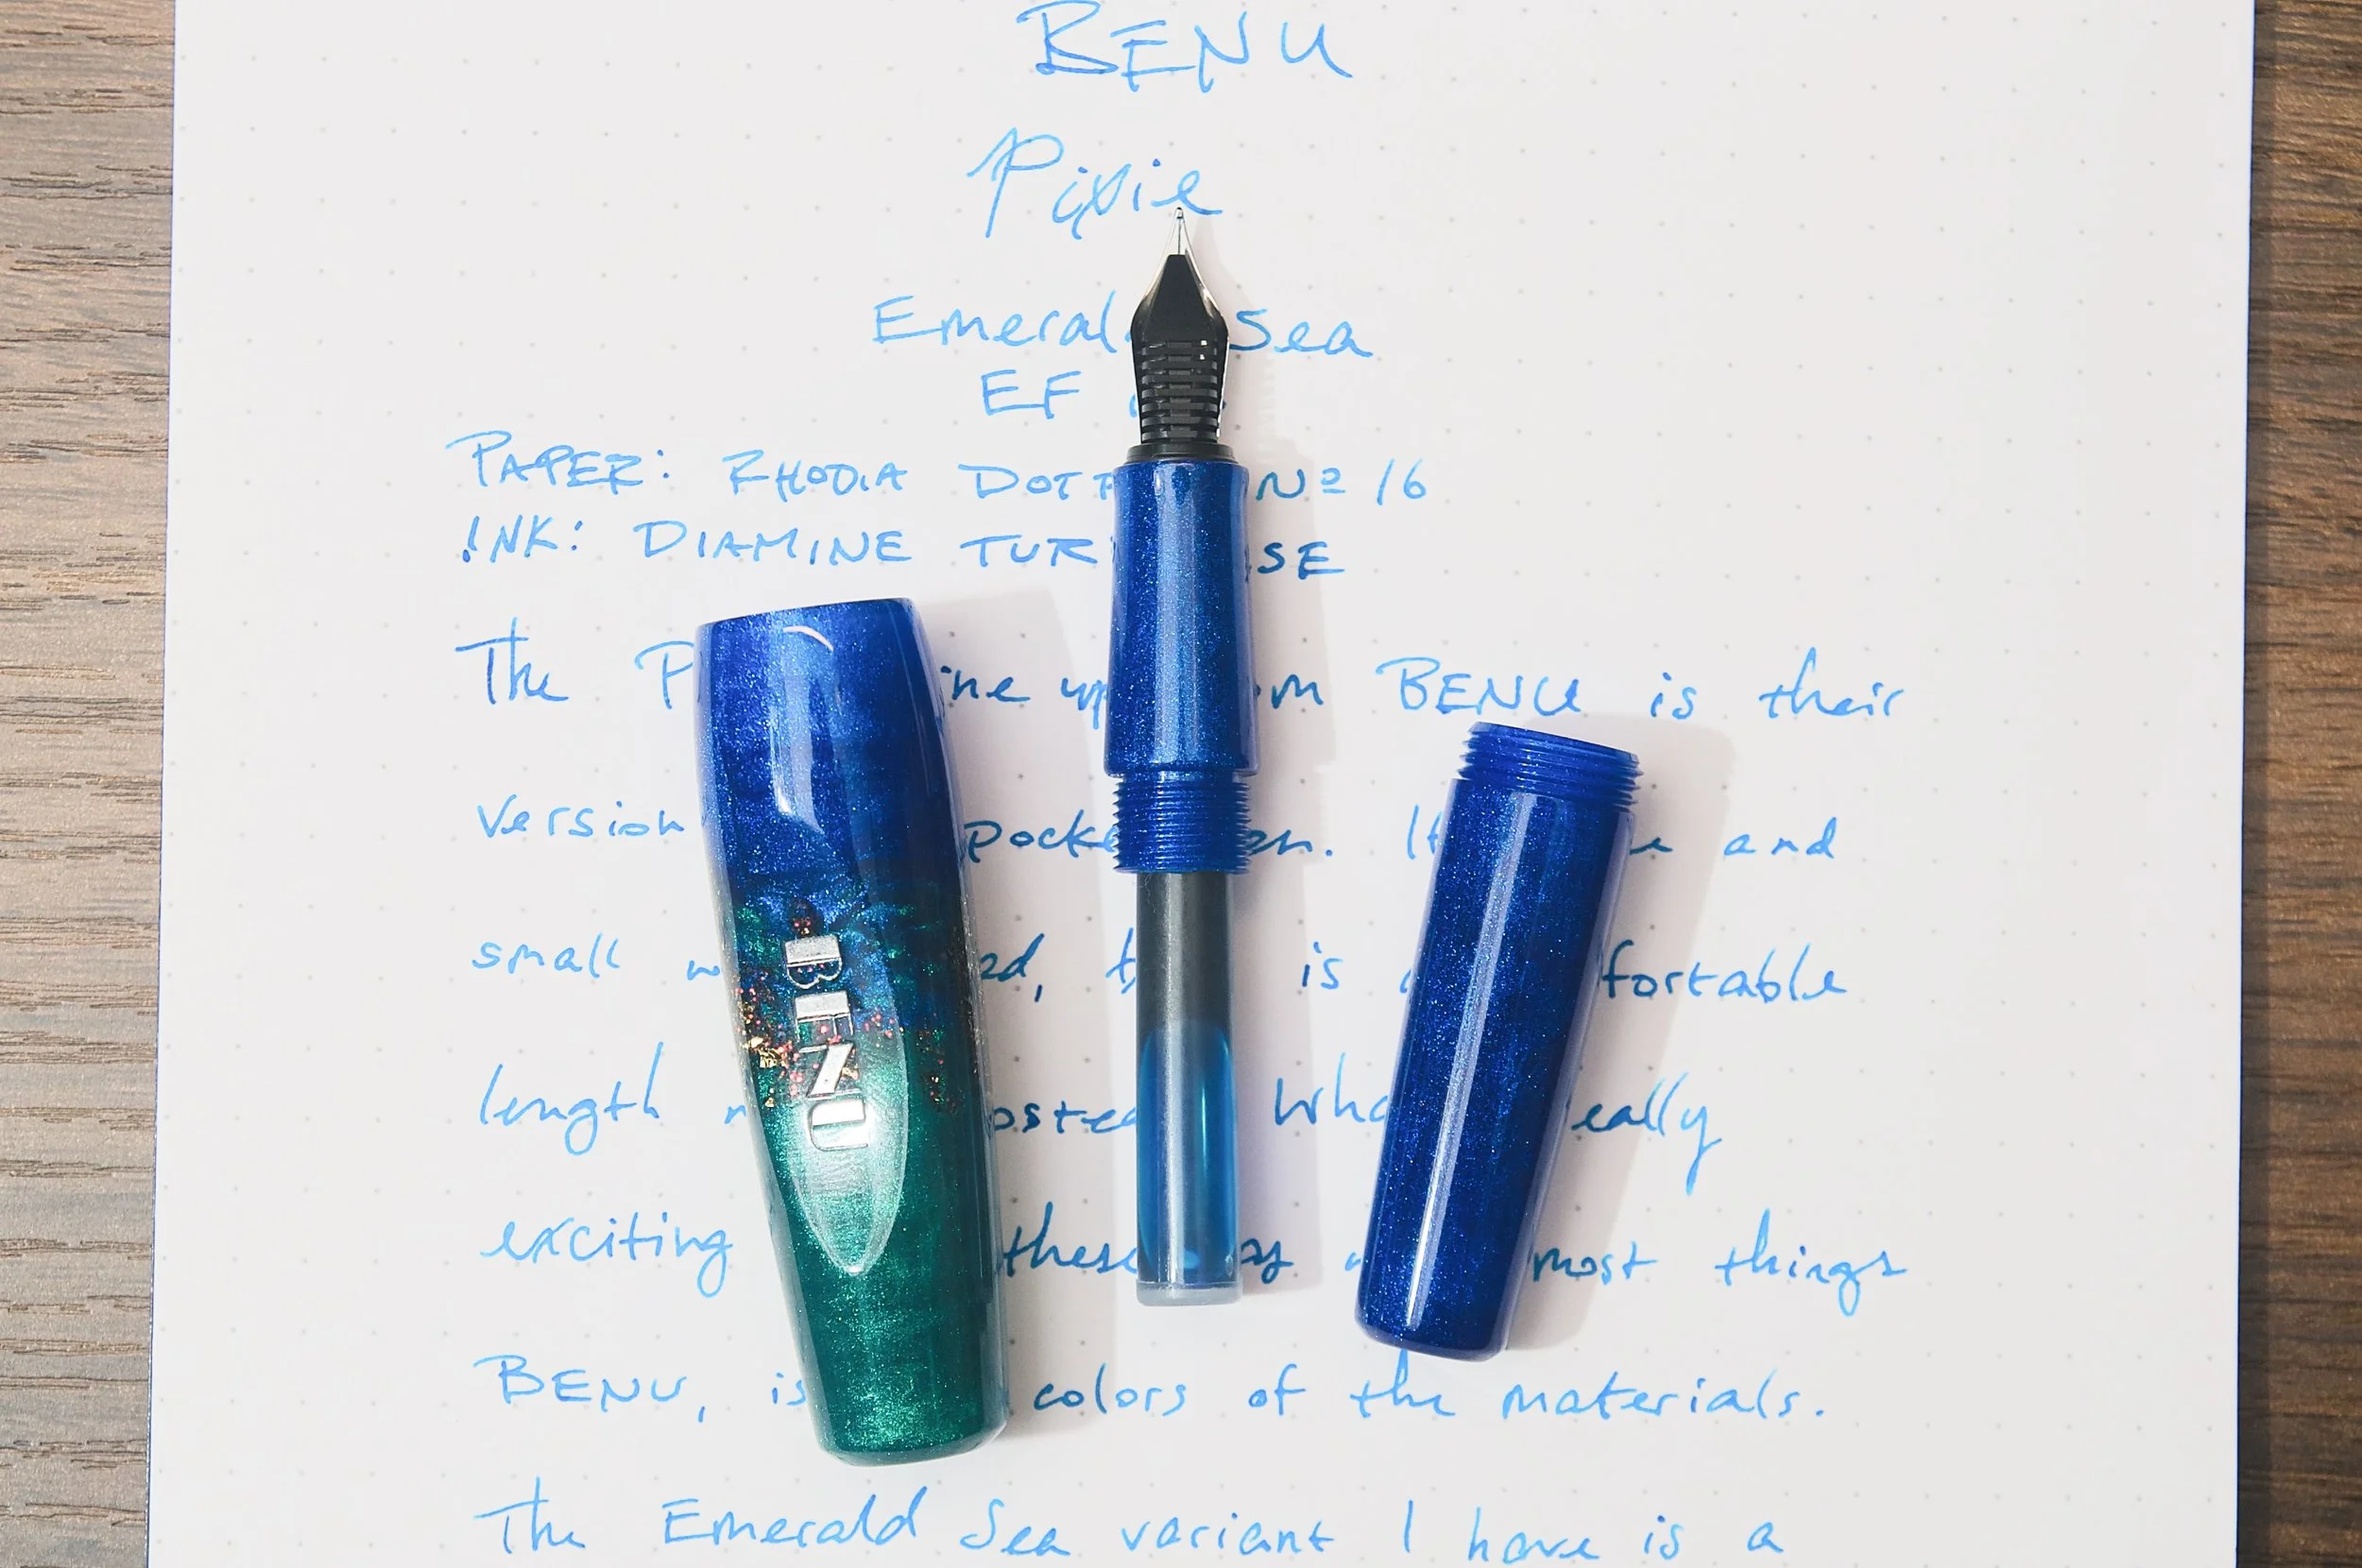 BENU
Pixie
Emerald Sea
EF
PAPER: RHODIA DOT Nº 16
INK: DIAMINE TURQUOISE
The Pixie line up from BENU is their
version pocket pen. It and
small w ed, is fortable
length posted What really
exciting these as most things
BENU, is colors of the materials.
The Emerald Sea variant I have is a
BENU